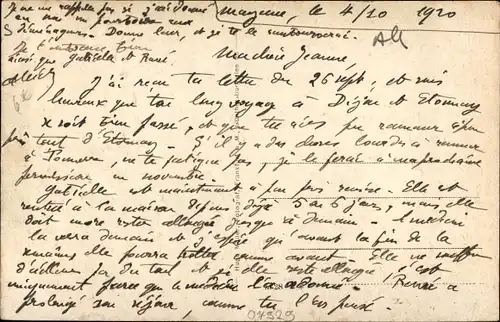 Je ne me rappelle pas si j'ai donné
Mayenne, le 4/10 1920
ou non un pourboire aux
déménageurs. Donne leur, et je te le rembourserai.
AM
Je t'embrasse bien
ainsi que Gabrielle et René
Ma chère Jeanne,
J'ai reçu ta lettre du 26 sept, et suis
heureux que ton long voyage à Dijon et Etormay
se soit bien passé, et que tu aies pu ramener à peu
près tout d'Etormay. S'il y a des choses lourdes à ramener
à Pomerre, ne te fatigue pas, je le ferai à ma prochaine
permission en novembre.
Gabrielle est maintenant à peu près remise. Elle est
rentrée à la maison depuis déjà 5 à 6 jours, mais elle
doit encore rester allongée jusque à demain. Le médecin
la verra demain et j'espère qu'avant la fin de la
semaine elle pourra trotter comme avant. Elle ne souffre
d'ailleurs pas du tout et si elle reste allongée, c'est
uniquement parce que le médecin l'a ordonné. René a
prolongé son séjour, comme tu l'as pensé.
07929